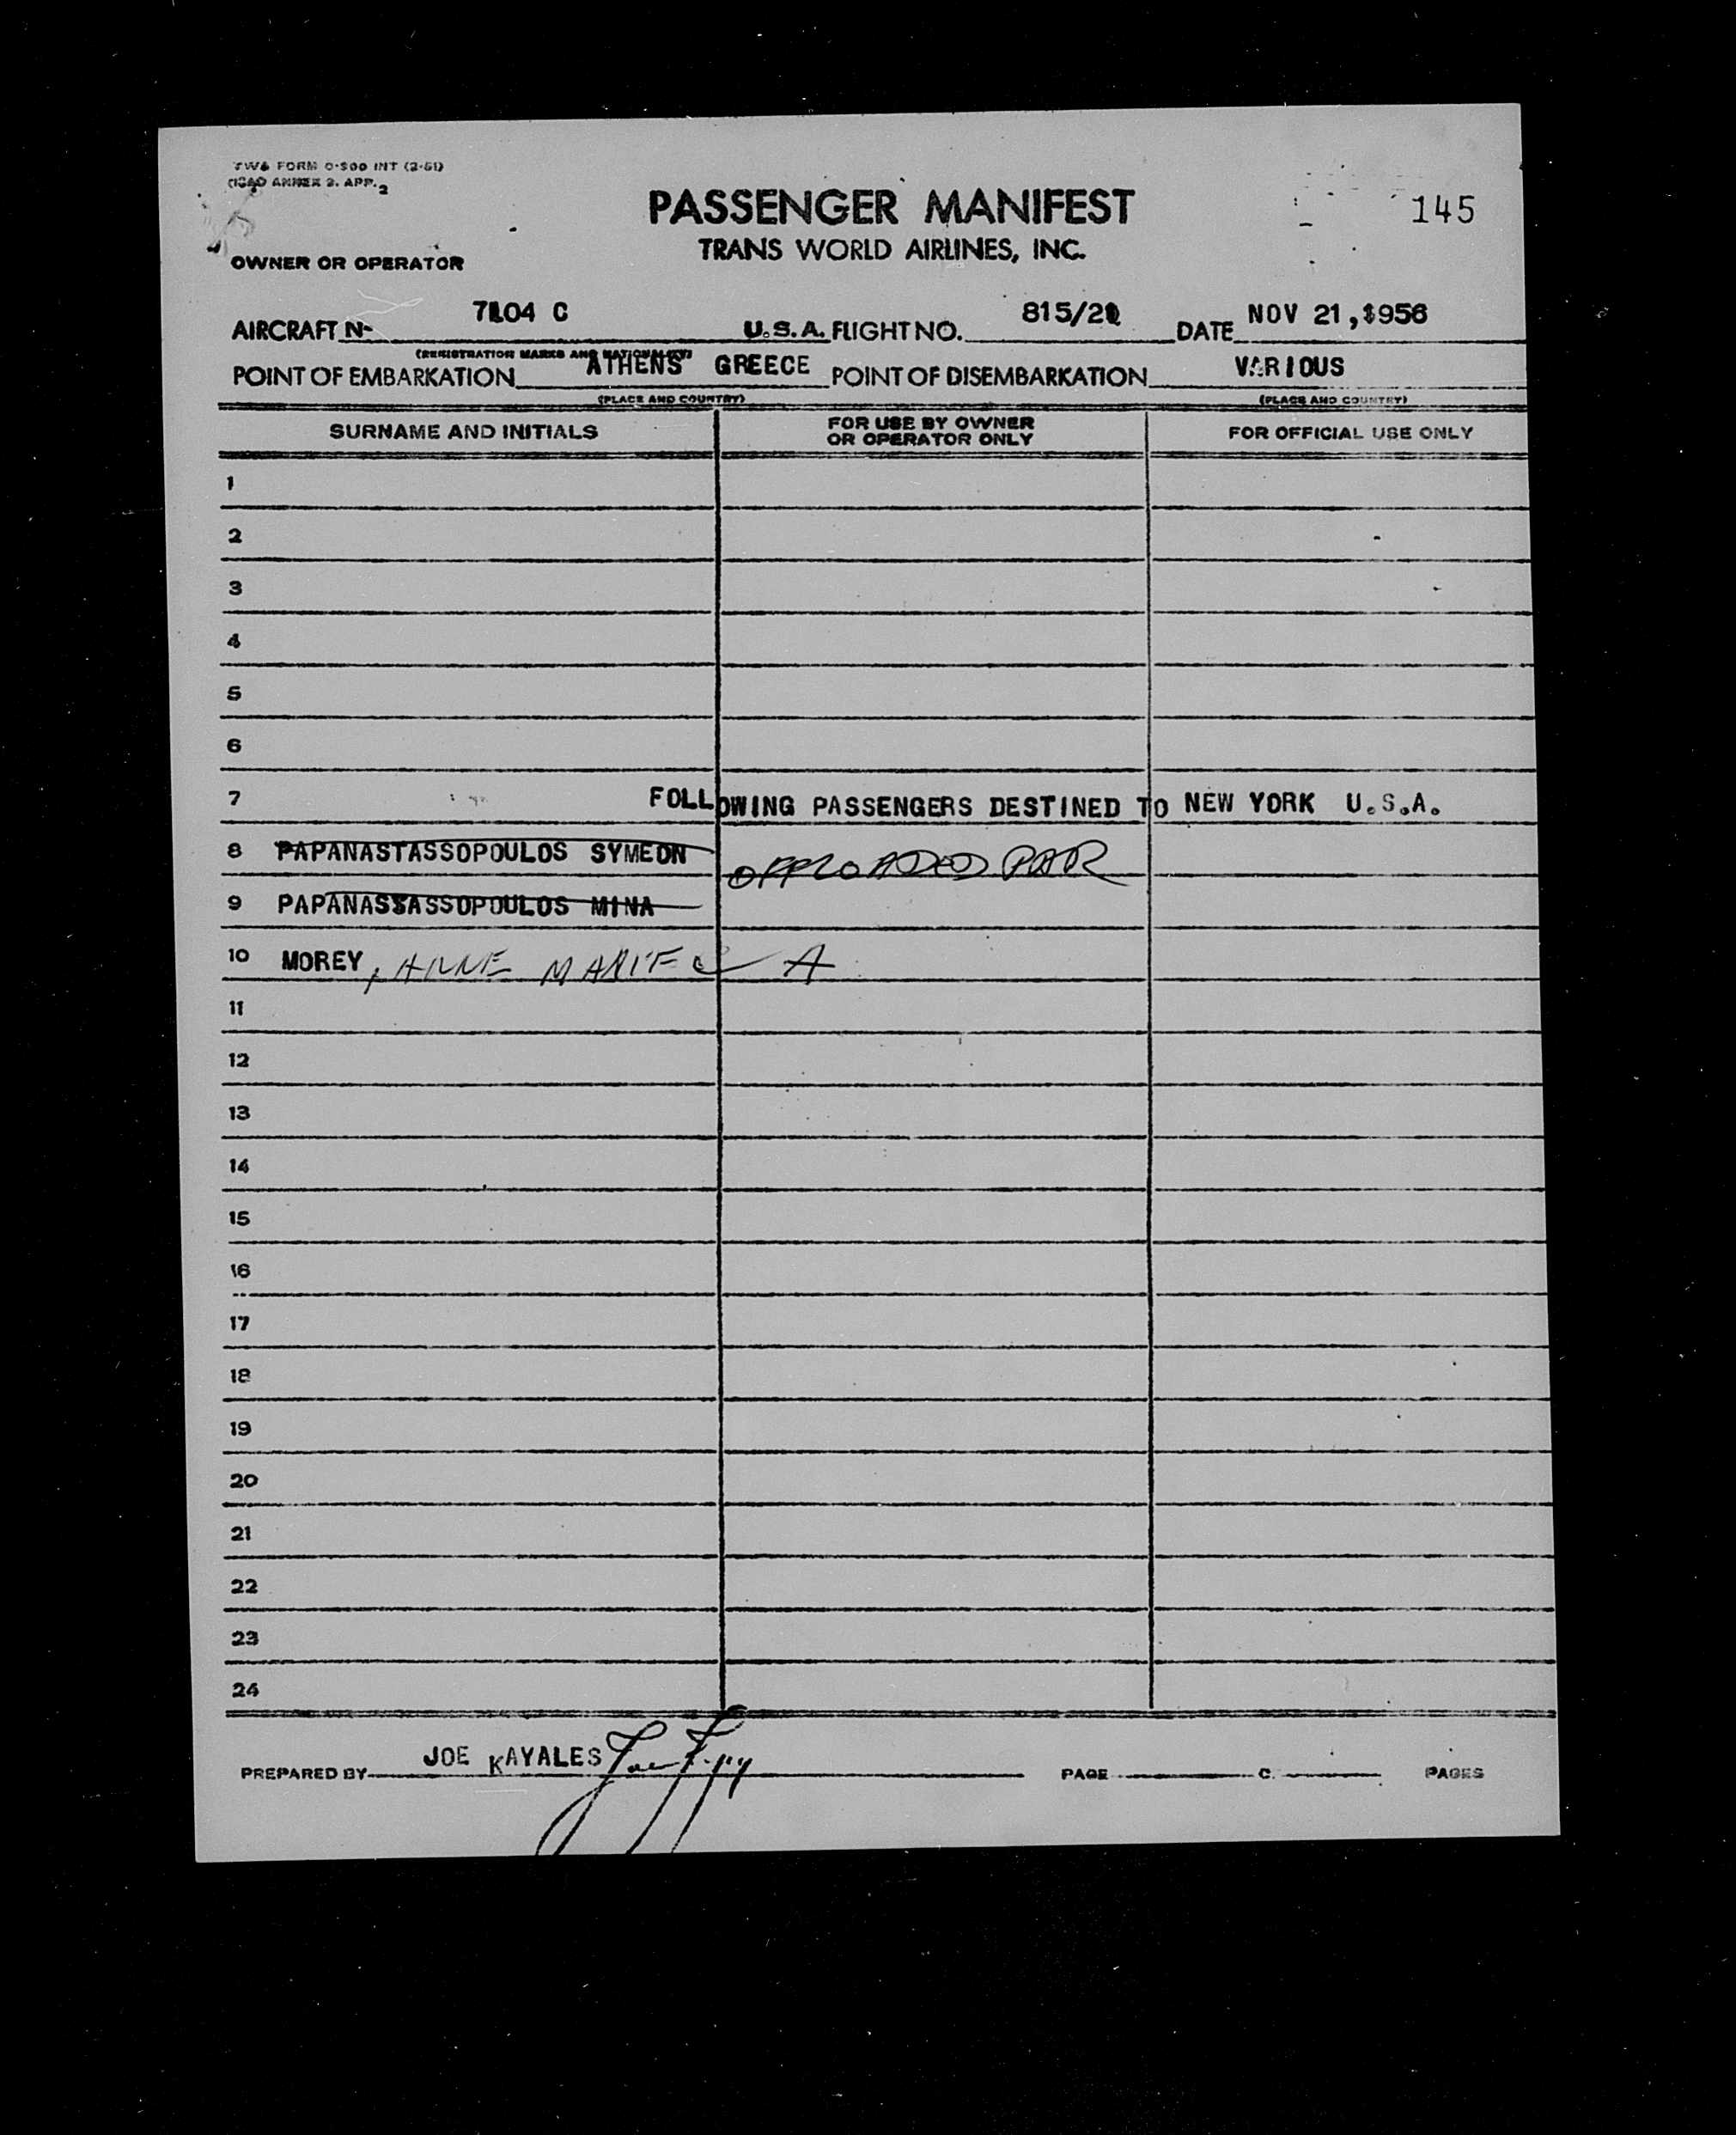 TWA FORM O-500 INT (2-51)
(ICAO ANNEX 9. APP. 2
PASSENGER MANIFEST
145
TRANS WORLD AIRLINES, INC.
OWNER OR OPERATOR
AIRCRAFT N- 7104 C U.S.A. FLIGHT NO. 815/21 DATE NOV 21, 1956
(REGISTRATION MARKS AND NATIONALITY)
POINT OF EMBARKATION ATHENS GREECE POINT OF DISEMBARKATION VARIOUS
(PLACE AND COUNTRY) (PLACE AND COUNTRY)
SURNAME AND INITIALS FOR USE BY OWNER OR OPERATOR ONLY FOR OFFICIAL USE ONLY
1
2
3
4
5
6
7 FOLLOWING PASSENGERS DESTINED TO NEW YORK U.S.A.
8 PAPANASTASSOPOULOS SYMEON OFFLOADED PAR
9 PAPANASTASSOPOULOS MINA
10 MOREY, ANNE MARIE A
11
12
13
14
15
16
17
18
19
20
21
22
23
24
PREPARED BY JOE KAYALES PAGE PAGES